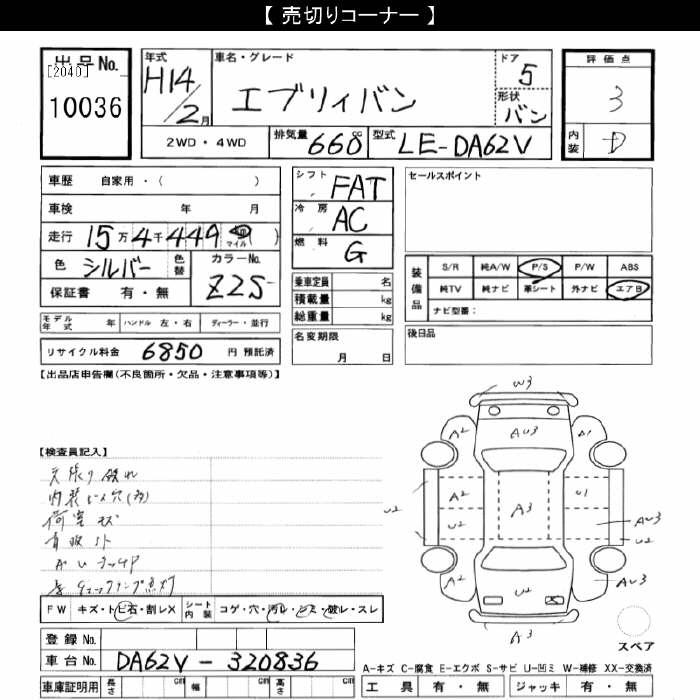 【 売切りコーナー 】
出品No.
[2040]
10036
年式
H14/2月
車名・グレード
エブリィバン
ドア
5
形状
バン
評価点
3
内装
D
2WD・4WD
排気量
660cc
型式
LE-DA62V
車歴 自家用・( )
車検 年 月
走行 15万4千449 km マイル ( )
色 シルバー 色替
カラーNo.
Z2S
保証書 有・無
シフト FAT
冷房 AC
燃料 G
乗車定員 名
積載量 kg
総重量 kg
名変期限
月 日
セールスポイント
装備品
S/R 純A/W P/S P/W ABS
純TV 純ナビ 革シート 外ナビ エアB
ナビ型番：
後日品
モデル年式 年 ハンドル 左・右 ディーラー・並行
リサイクル料金 6850 円 預託済
【出品店申告欄(不良箇所・欠品・注意事項等)】
【検査員記入】
天張り破れ
内装ビス穴(多)
荷室キズ
FW キズ・トビ石・割レX シート内装 コゲ・穴・汚レ・シミ・破レ・スレ
登録No.
車台No. DA62V-320836
車庫証明用 長さ cm 幅 cm 高さ cm
W3
A2
AU3
A1
A2
U2
A3
U1
U2
AU3
U2
U2
AU3
A3
スペア
A-キズ C-腐食 E-エクボ S-サビ U-凹ミ W-補修 XX-交換済
工具 有・無 ジャッキ 有・無